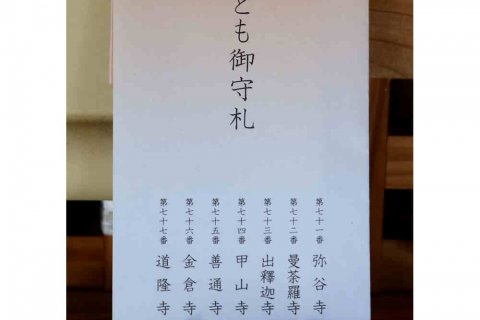 とも御守札
第七十一番 弥谷寺
第七十二番 曼荼羅寺
第七十三番 出釋迦寺
第七十四番 甲山寺
第七十五番 善通寺
第七十六番 金倉寺
第七十七番 道隆寺